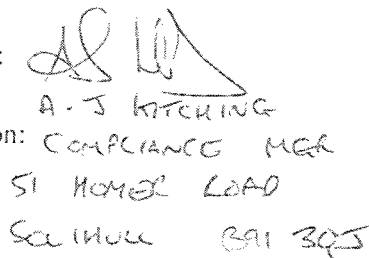 :
A. J KITCHING
on: COMPLIANCE MGR
51 HOMER ROAD
SOLIHULL B91 3QJ